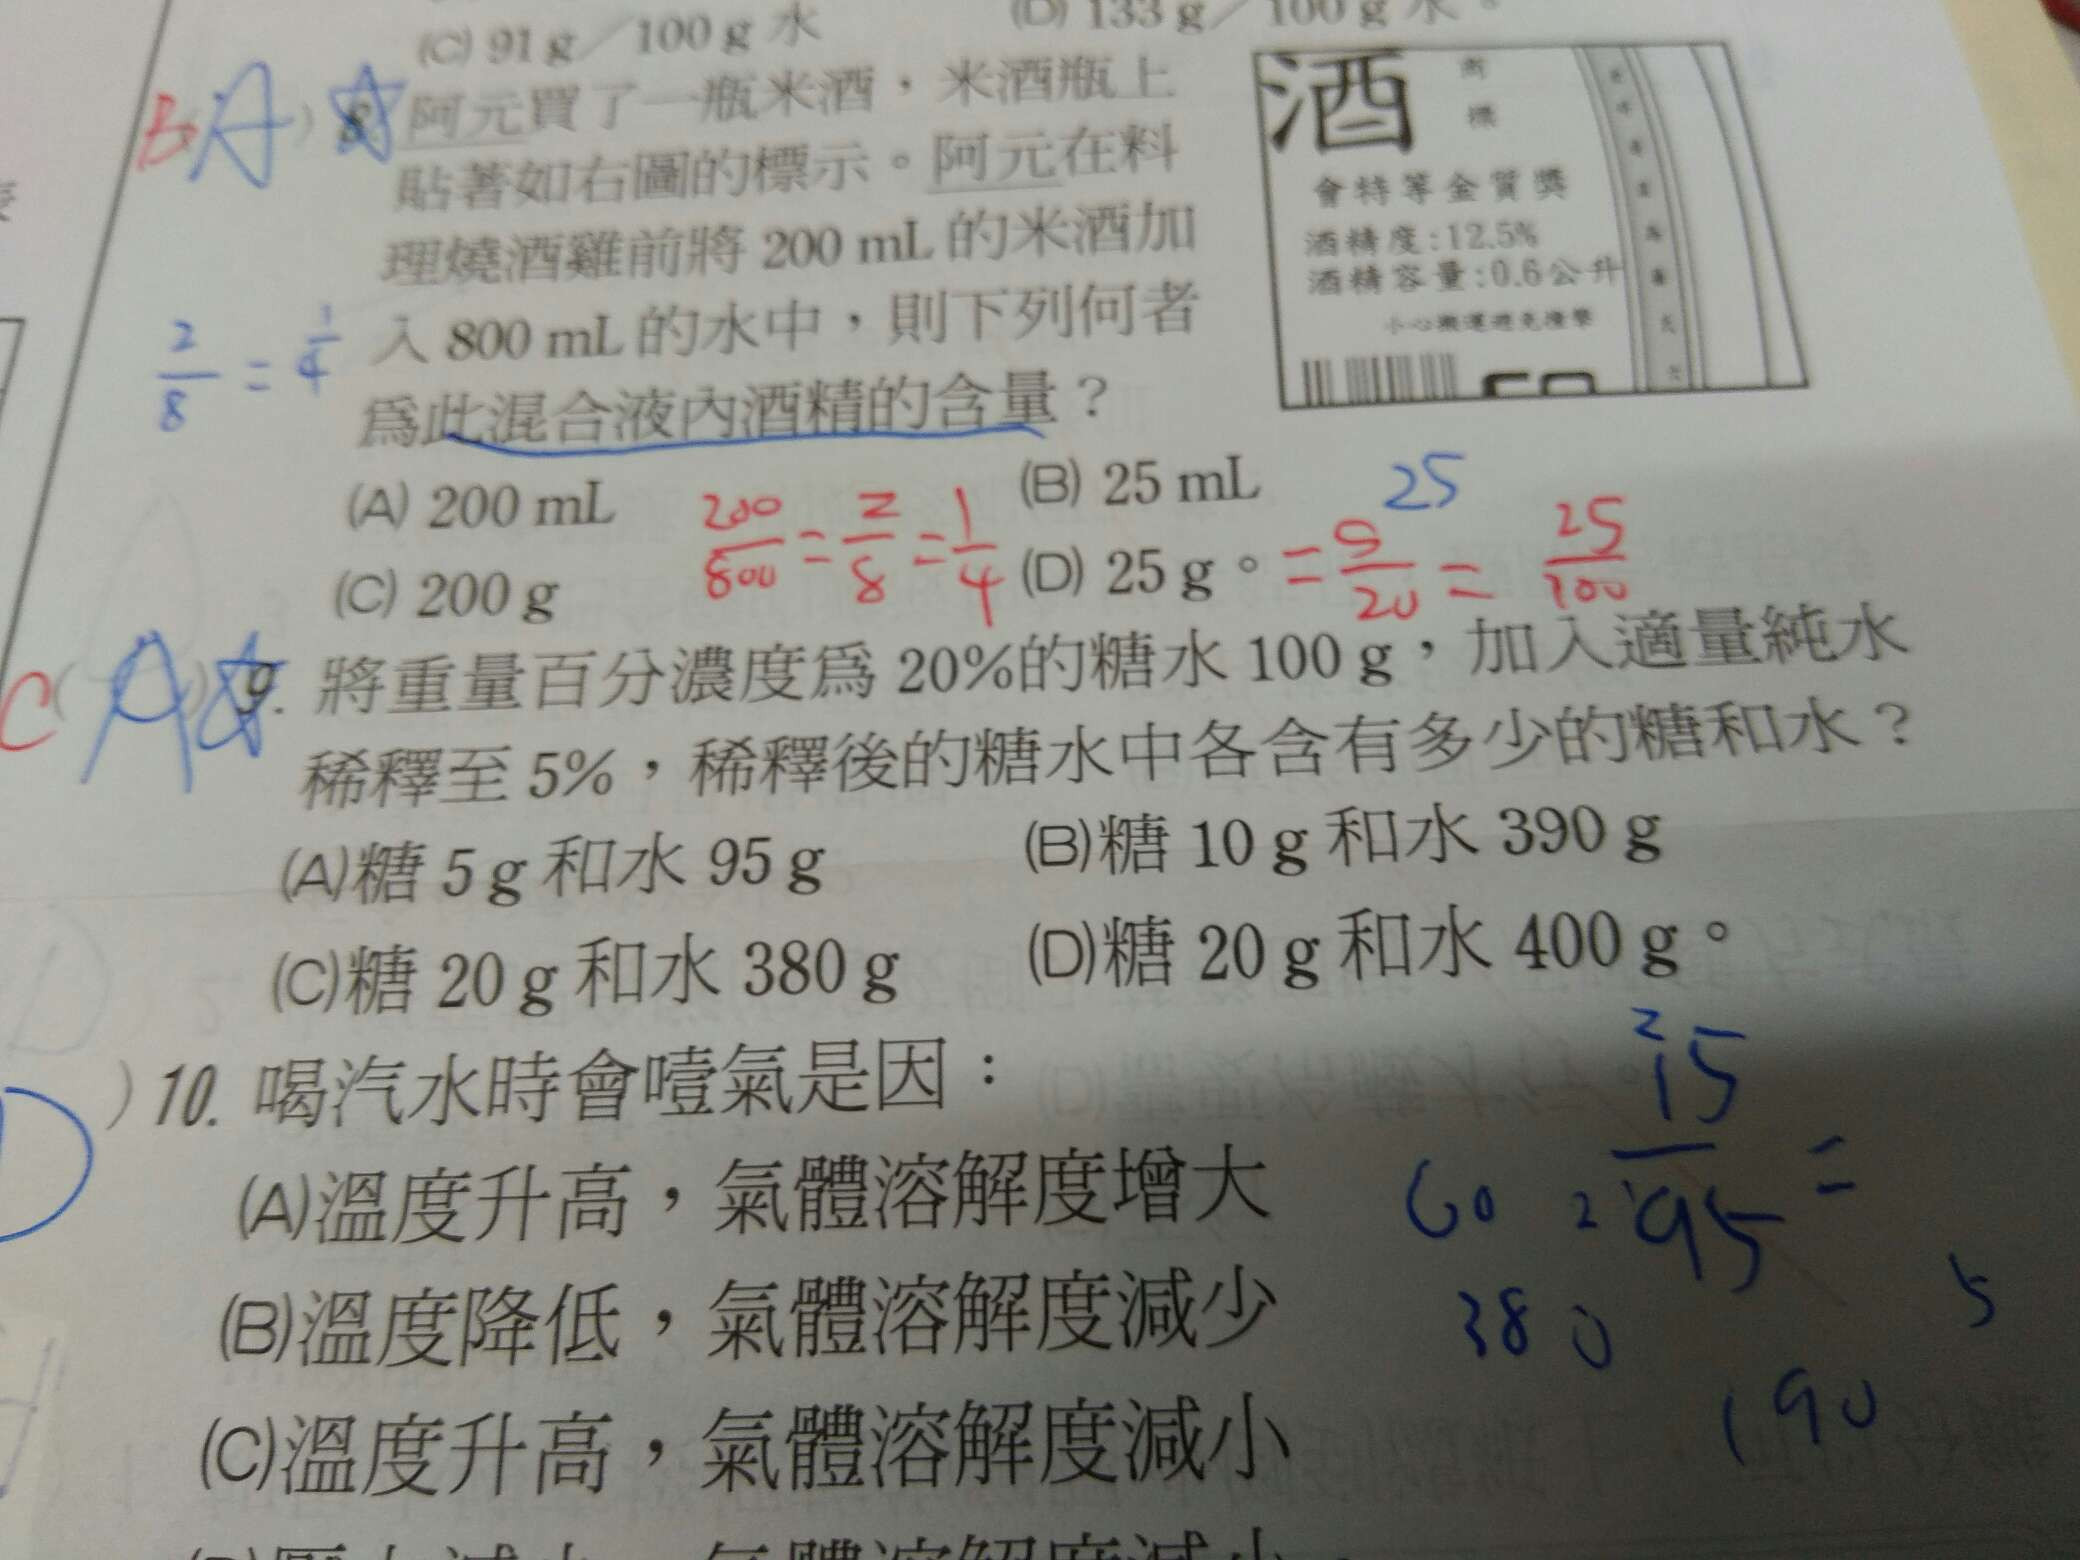 (C) 91 g／100 g 水
(D) 133 g／100 g 水。
B A ) 8. 阿元買了一瓶米酒，米酒瓶上
貼著如右圖的標示。阿元在料
理燒酒雞前將 200 mL 的米酒加
入 800 mL 的水中，則下列何者
為此混合液內酒精的含量？
2/8 = 1/4
酒
商標
會特等金質獎
酒精度:12.5%
酒精容量:0.6公升
小心搬運避免撞擊
(A) 200 mL
(B) 25 mL
25
(C) 200 g
200/800 = 2/8 = 1/4
(D) 25 g。
= 5/20 = 25/100
C ( A ) 9. 將重量百分濃度為 20%的糖水 100 g，加入適量純水
稀釋至 5%，稀釋後的糖水中各含有多少的糖和水？
(A)糖 5 g 和水 95 g
(B)糖 10 g 和水 390 g
(C)糖 20 g 和水 380 g
(D)糖 20 g 和水 400 g。
D ) 10. 喝汽水時會噎氣是因：
(A)溫度升高，氣體溶解度增大
(B)溫度降低，氣體溶解度減少
(C)溫度升高，氣體溶解度減小
60
380
190
5